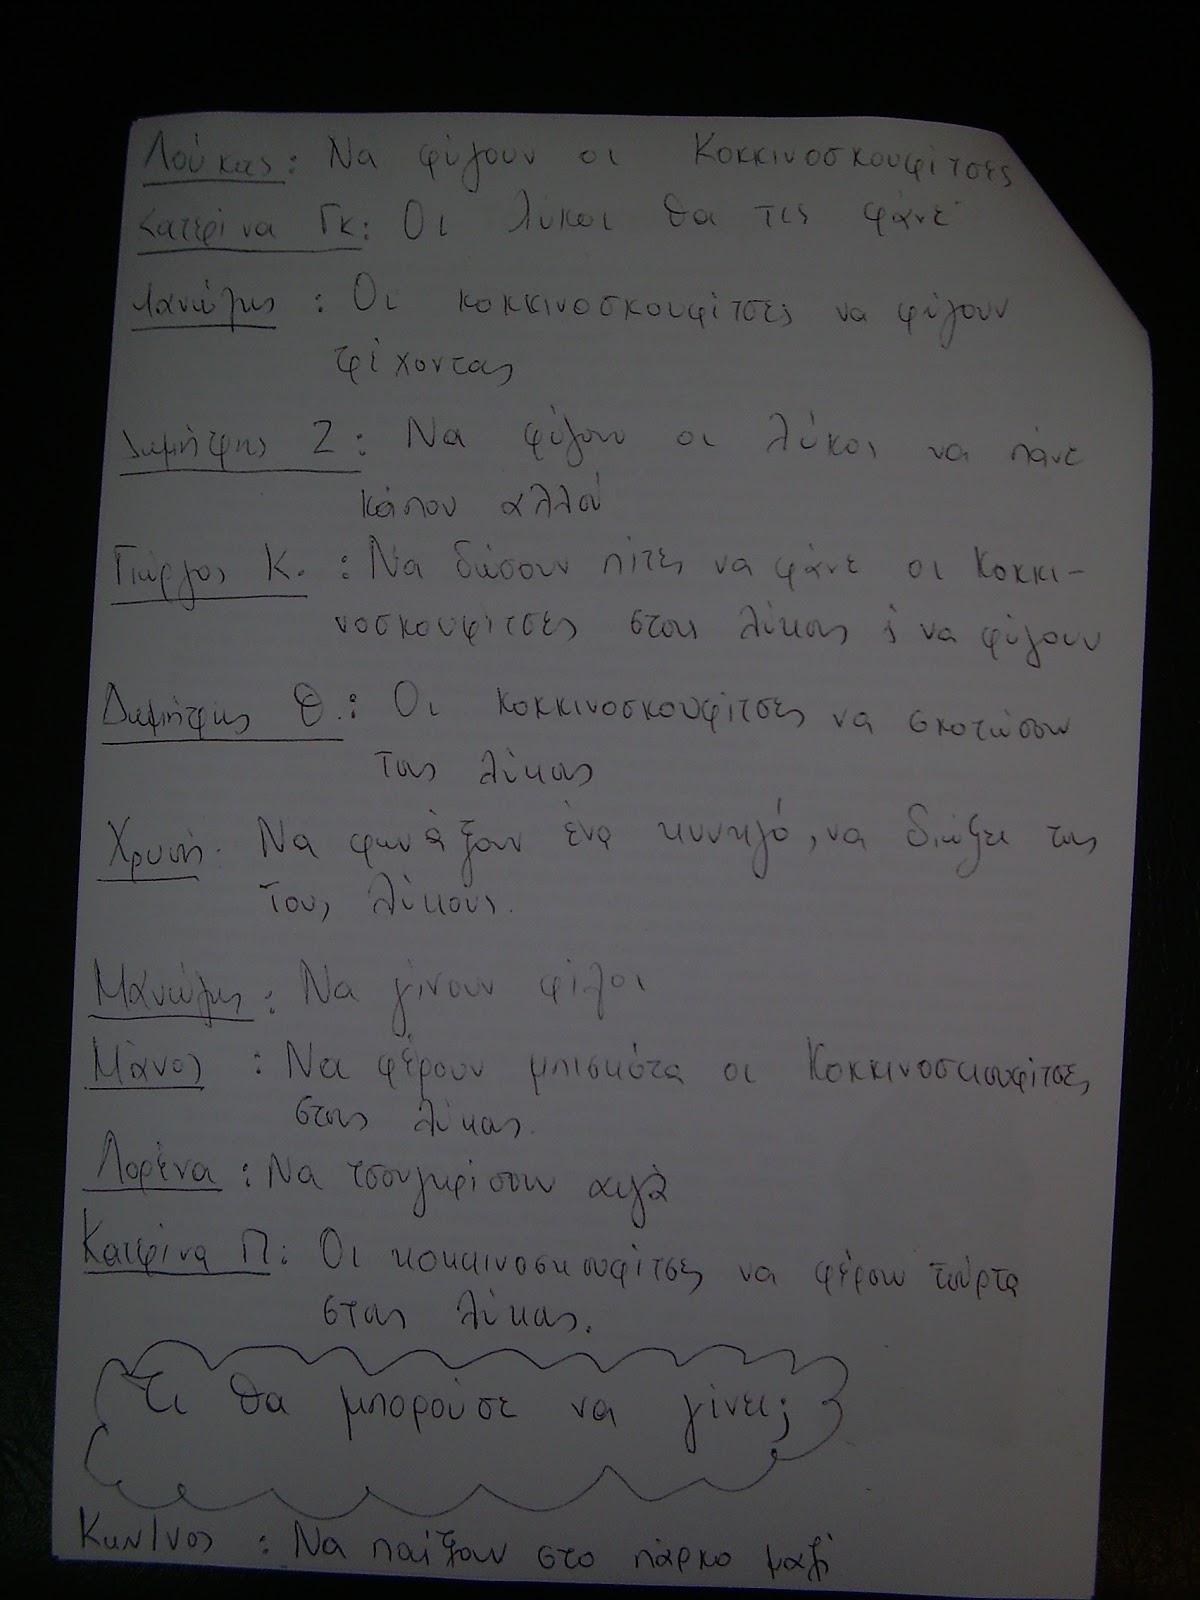 Λούκας: Να φύγουν οι Κοκκινοσκουφίτσες
Κατερίνα Γκ: Οι λύκοι θα τις φάνε
Μανώλης : Οι κοκκινοσκουφίτσες να φύγουν
τρέχοντας
Δημήτρης Ζ : Να φύγουν οι λύκοι να πάνε
κάπου αλλού
Γιώργος Κ. : Να δώσουν πίτες να φάνε οι Κοκκι-
νοσκουφίτσες στους λύκους ή να φύγουν
Δημήτρης Θ.: Οι κοκκινοσκουφίτσες να σκοτώσουν
τους λύκους
Χρυσή: Να φωνάξουν ένα κυνηγό, να διώξει τους
τους λύκους.
Μανώλης: Να γίνουν φίλοι
Μάνος : Να φέρουν μπισκότα οι Κοκκινοσκουφίτσες
στους λύκους.
Λορένα : Να τσουγκρίσουν αυγά
Κατερίνα Π: Οι κοκκινοσκουφίτσες να φέρουν τούρτα
στους λύκους.
Τι θα μπορούσε να γίνει;
Κων/νος : Να παίξουν στο πάρκο μαζί